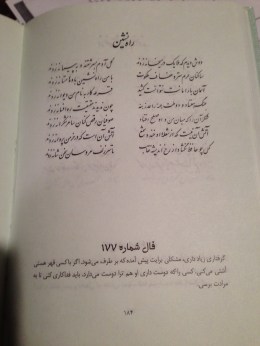 راه نشین
دوش دیدم که ملایک در میخانه زدند گل آدم بسرشتند و به پیمانه زدند
ساکنان حرم ستر و عفاف ملکوت با من راه نشین باده مستانه زدند
آسمان بار امانت نتوانست کشید قرعه کار به نام من دیوانه زدند
جنگ هفتاد و دو ملت همه را عذر بنه چون ندیدند حقیقت ره افسانه زدند
شکر آن را که میان من و او صلح افتاد صوفیان رقص کنان ساغر شکرانه زدند
آتش آن نیست که از شعله او خندد شمع آتش آن است که در خرمن پروانه زدند
کس چو حافظ نگشاد از رخ اندیشه نقاب تا سر زلف عروسان سخن شانه زدند
فال شماره ۱۷۷
گرفتاری زیاد داری، مشکلاتی برایت پیش آمده که بر طرف می‌شود. اگر با کسی قهر هستی
آشتی می‌کنی. کسی را که دوست داری او هم ترا دوست می‌دارد. باید فداکاری کنی تا به
مرادت برسی.
۱۸۴